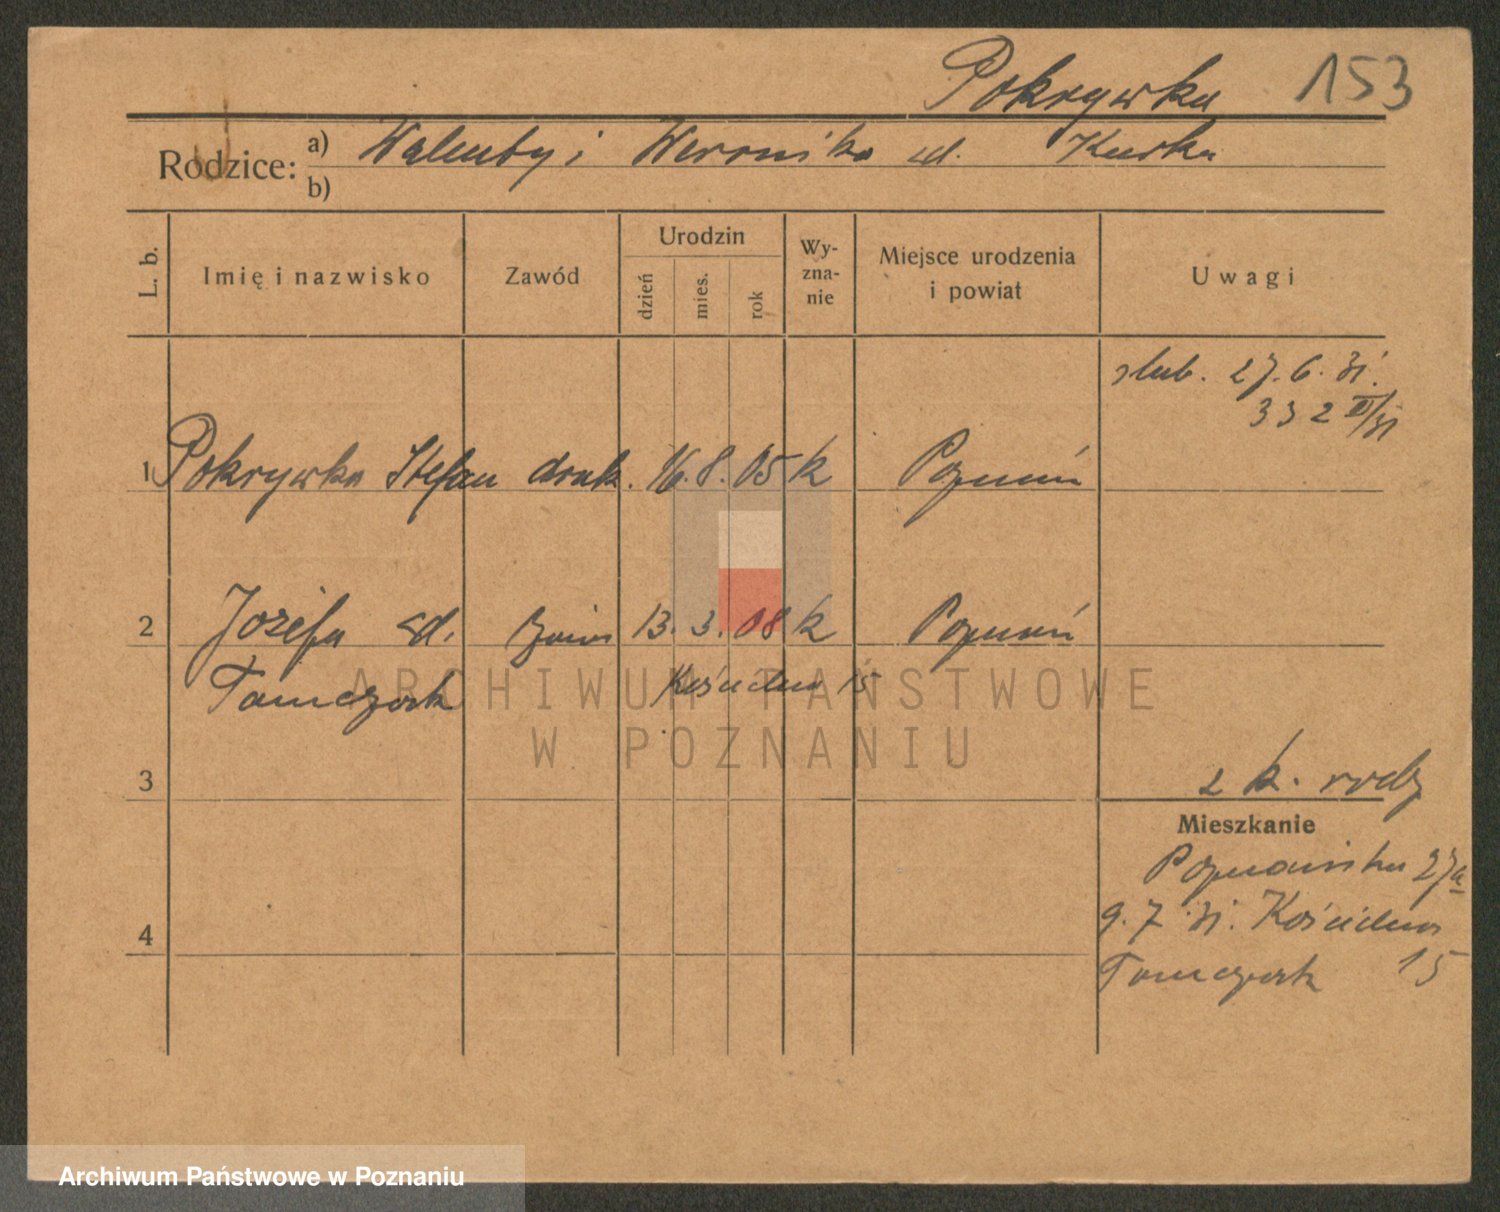 Pokrywka 153
Rodzice: a) Walenty i Weronika zd. Kurka
b)
L. b. Imię i nazwisko Zawód Urodzin dzień mies. rok Wy-zna-nie Miejsce urodzenia i powiat Uwagi
ślub. 27.6.31.
332 III/31
1 Pokrywka Stefan druk. 16. 8. 05 k Poznań
2 Józefa zd. 13. 3. 08 k Poznań
Tomczak 15
ARCHIWUM PAŃSTWOWE
W POZNANIU
3 2 k. rodz
Mieszkanie
Poznańska 27a
9. 7 31.
4
Tomczak 15
Archiwum Państwowe w Poznaniu